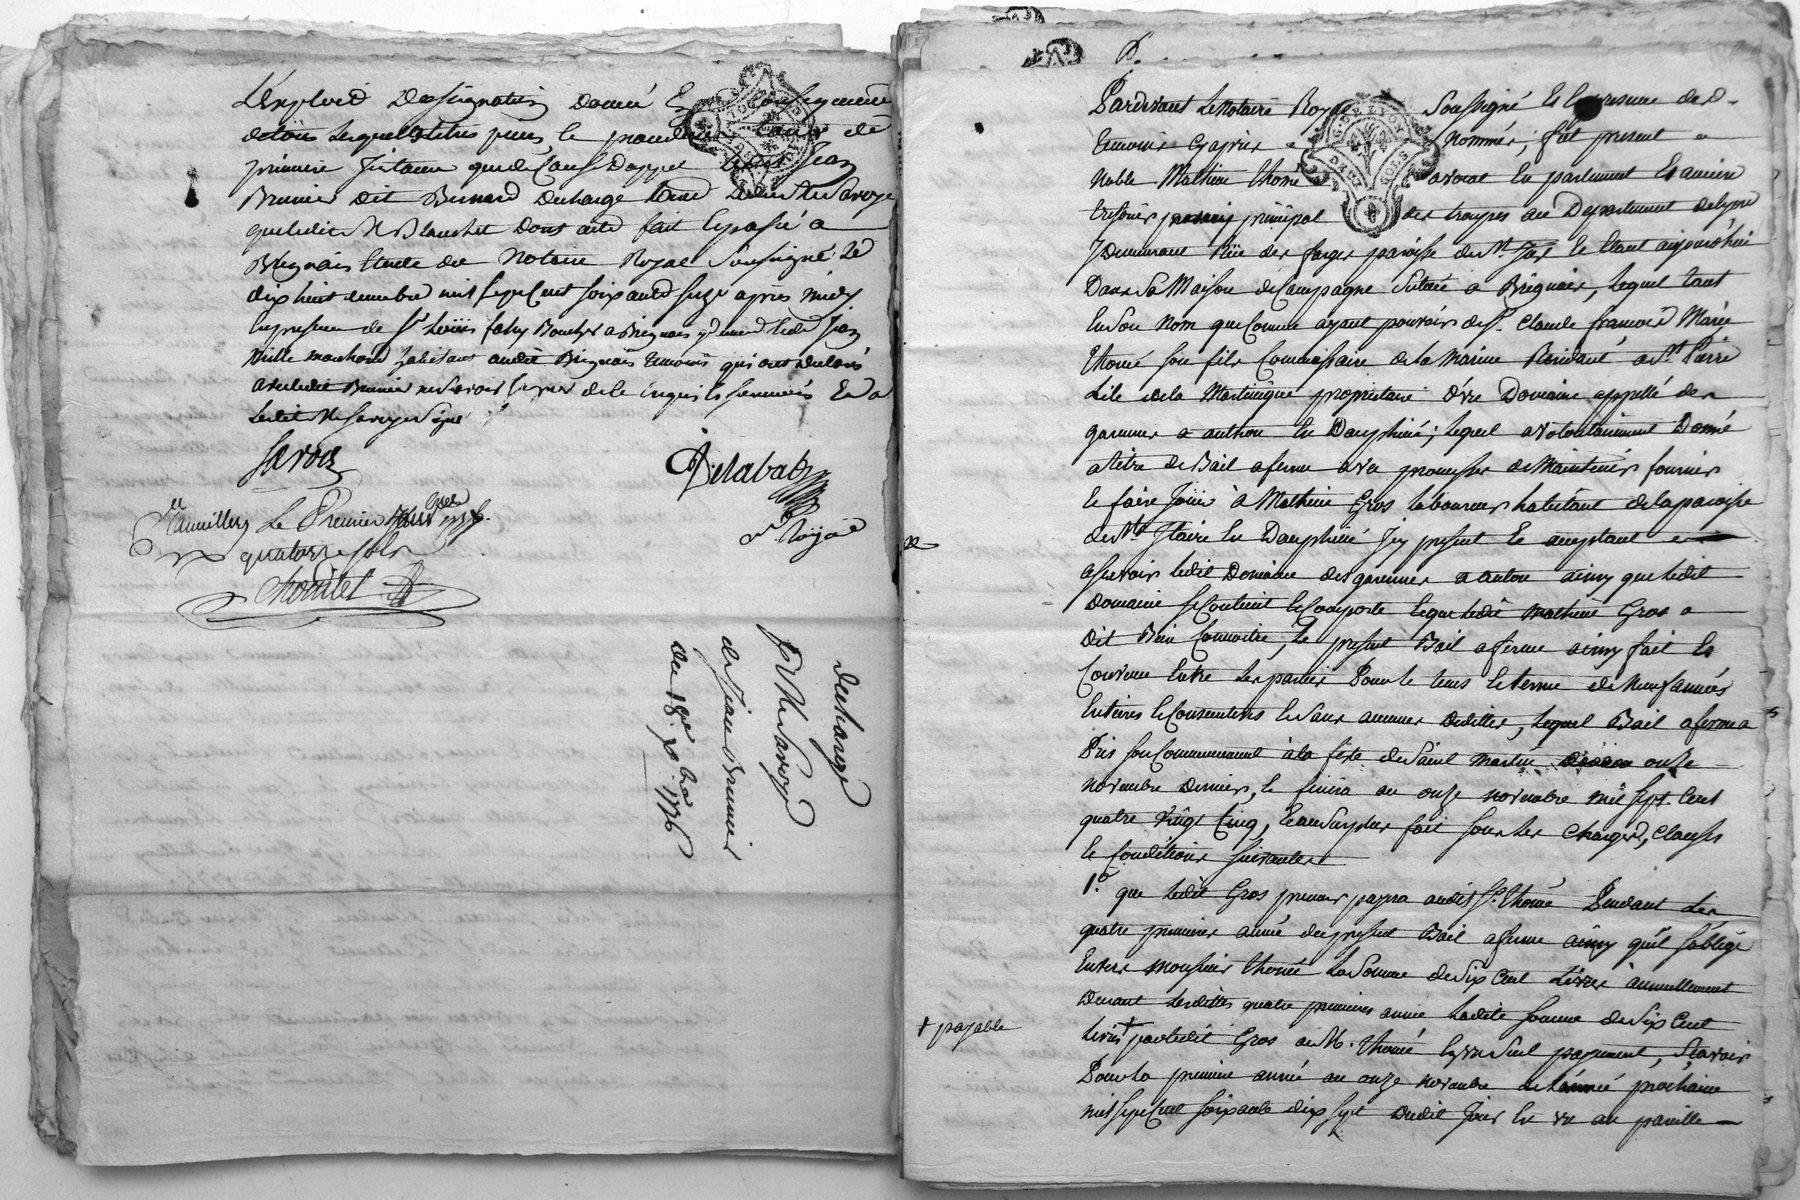 L'exploit d'assignation donné En Conséquence
de tous lesquels titres pieces le
premiere Instance que de Cause Dappel Jean
Brunier dit Bernard decharge tant ledit Me Savoye
que ledit Me Blanchet dont acte fait Et passé a
Brignais Etude du Notaire Royal Soussigné Le
dix huit decembre mil sept Cent soixante seize après midy
En presence de Sr Louis Boucher a Brignais Jean
marchand habitant audit Brignais temoins qui ont
ledit Brunier ne Savoir signer de ce enquis Et sommés Et a
Ledit Me Savoye signé
Savoye
Delabat
nre Royal
Le Premier 1776.
quatorze sols
decharge
Pr Me Savoye
de Jean Brunier
du 18e Xbre 1776
P.
Pardevant Le Notaire Royal Soussigné Et En presence des
temoins Cy après nommés; fut present
Noble Mathieu Thomé avocat En parlement Et ancien
tresorier principal des troupes au Departement de Lyon
y Demeurant Rüe des forges paroisse de St. Et Etant aujourd'hui
Dans Sa Maison de Campagne Scituée a Brignais, Lequel tant
En Son Nom que Comme ayant pouvoir de Sr. Claude françois Marie
Thomé Son fils Commissaire de la Marine Residant a St. Pierre
L'ile de la Martinique proprietaire d'un Domaine appellé des
garennes a anthon En Dauphiné; Lequel a volontairement Donné
a titre de Bail a ferme avec promesse de Maintenir fournir
Et faire Joüir à Mathieu Gros Laboureur habitant de la paroisse
de Ste. En Dauphiné Icy present Et acceptant
assavoir Ledit Domaine des garennes a anton ainsy que Ledit
Domaine se Contient Et Comporte Et que Ledit Mathieu Gros a
Dit Bien Connoitre, Le present Bail a ferme ainsy fait Et
Convenu Entre Les parties Pour Le tems Et terme de Neuf années
Entieres Et Consecutives Et Sans aucunes d'icelles, Lequel Bail a ferme a
Pris Son Commencement à la fete de Saint Martin onze
novembre dernier, Et finira au onze novembre mil sept Cent
quatre Vingt Cinq, Et au Surplus fait Sous Les Charges, Clauses
Et Conditions Suivantes
1.° que Ledit Gros preneur payera audit Sr. Thomé Pendant Les
quatre premieres année du present Bail a ferme ainsy qu'il s'oblige
Envers monsieur Thomé La Somme de Six Cent Livres annuellement
Durant Lesdittes quatre premieres année Ladite Somme de Six Cent
Livres + par Ledit Gros au Sr. Thomé En un Seul payement, Scavoir
+ payable
Pour La premiere année au onze novembre de L'année prochaine
mil sept Cent Soixante dix sept Dudit Jour En un an pareille